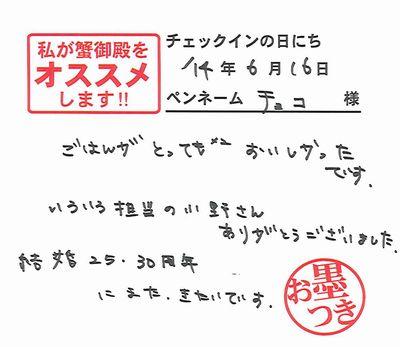 私が蟹御殿を
オススメ
します!!
チェックインの日にち
'14年6月16日
ペンネーム チョコ 様
ごはんが とっても×2 おいしかった
です.
いろいろ担当の小野さん
ありがとうございました.
結婚25.30周年
にまた.きたいです.
お墨つき